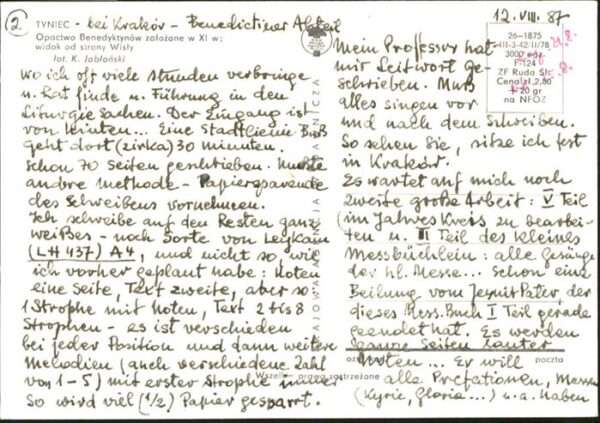 ②
TYNIEC - bei Kraków - Benedictiner Abtei
Opactwo Benedyktynów założone w XI w;
widok od strony Wisły
fot. K. Jabłoński
wo ich oft viele Stunden verbringe
u. Rat finde u. Führung in den
Liturgie Sachen. Der Eingang ist
von hinten... Eine Stadtlienie Bus
geht dort (zirka) 30 minuten.
Schon 70 Seiten geschrieben. Mußte
andre Methode - Papiersparende
des Schreibens vornehmen.
Ich schreibe auf den Resten ganz
weißes - noch Sorte von Leykam
(LH 437) A4, und nicht so, wie
ich vorher geplant habe: Noten
eine Seite, Text zweite, aber so:
1 Strophe mit Noten, Text 2 bis 8
Strophen - es ist verschieden
bei jeder Position und dann weitere
Melodien (auch verschiedene Zahl
von 1-5) mit erster Strophe immer
So wird viel (1/2) Papier gesparrt.
12. VIII. 87
26-1875
III-3-42/11/78
3000 egz.
F-124
ZF Ruda Śl.
Cena zł 2,80
+ 20 gr
na NFOZ
Mein Professor hat
mir Leitwort ge-
schrieben. Muß
alles singen vor
und nach dem Schreiben.
So sehen Sie, sitze ich fest
in Kraków.
Es wartet auf mich noch
zweite große Arbeit: V Teil
(im Jahres Kreis zu bearbei-
ten u. III Teil des kleines
Messbüchlein: alle Gesänge
der hl. Messe... schon eine
Beilung vom Jesuit Pater, der
dieses Mess. Buch I Teil gerade
geendet hat. Es werden
ganze Seiten lauter
Noten... Er will
poczta
alle Prefationen, Messen
(Kyrie, Gloria...) u. a. haben
zastrzeżone